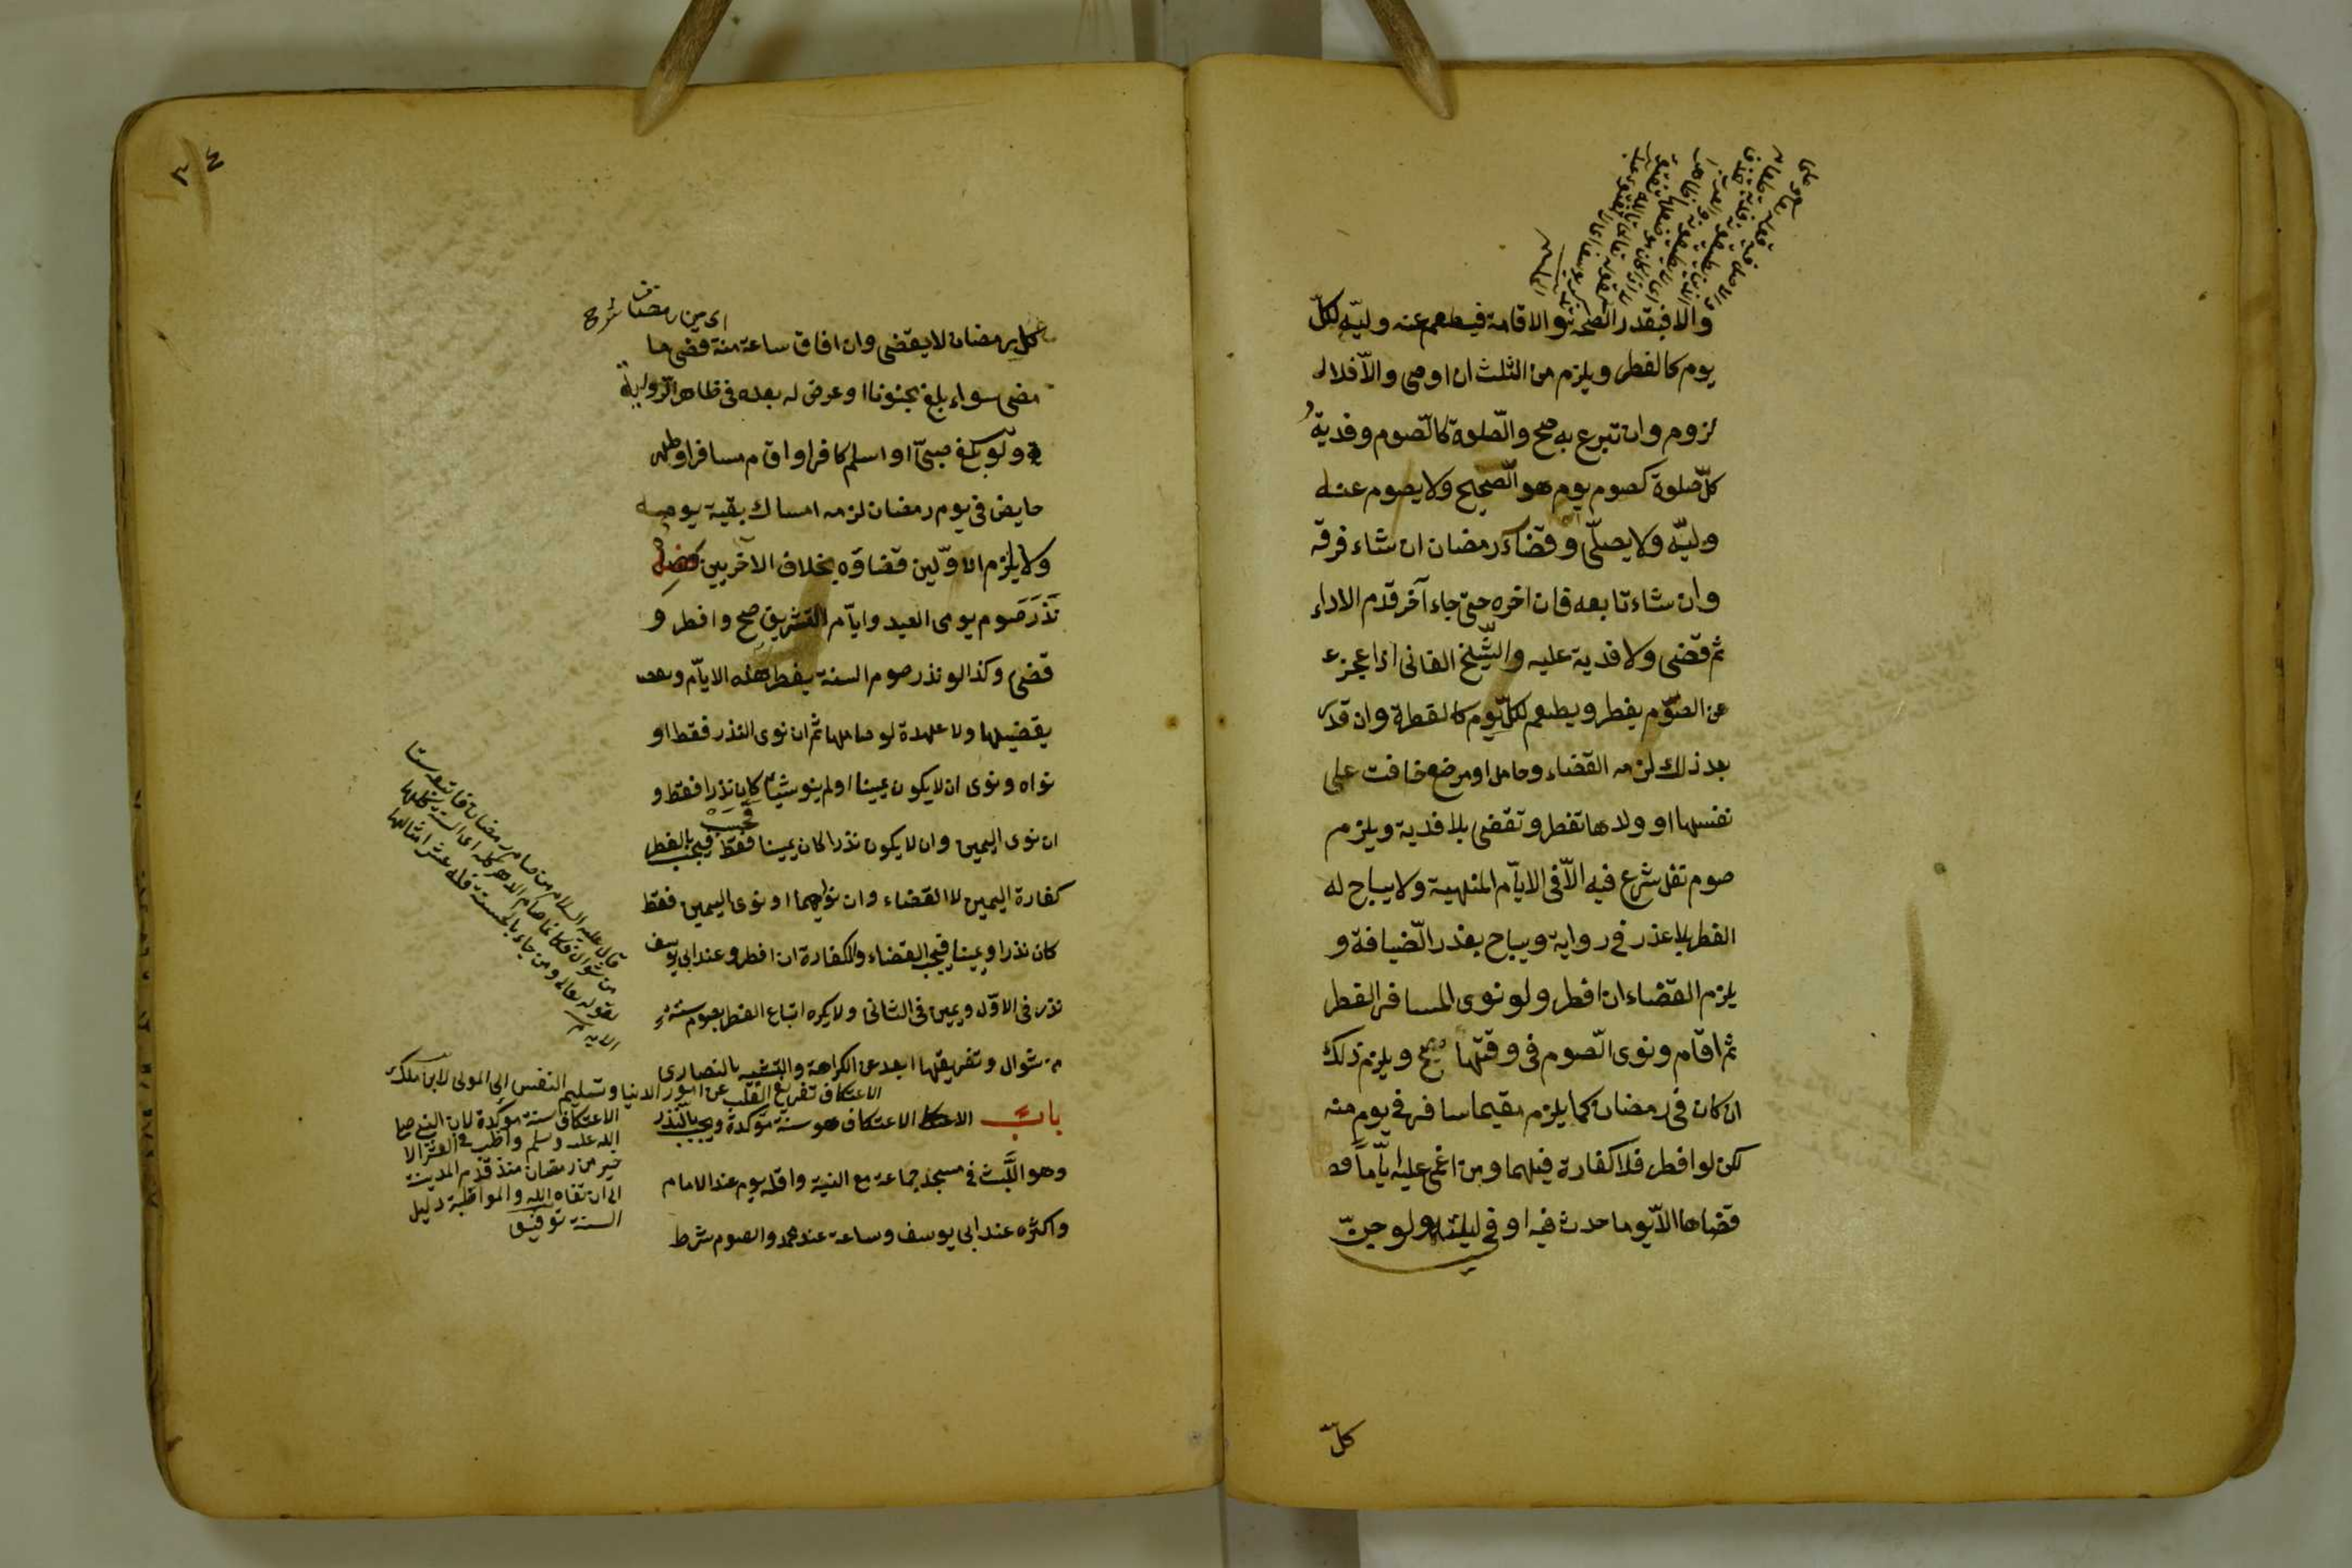 والا فبقدر الصحة والاقامة فيطعم عنه وليّه لكلّ
يوم كالفطر ويلزم من الثلث ان اوصى والّا فلا
لزوم وان تبرع به صح والصّلوة كالصّوم وفدية
كلّ صلوة كصوم يوم هو الصّحيح ولا يصوم عنه
وليّه ولا يصلّى وقضاء رمضان ان شاء فرقه
وان شاء تابعه فان اخره حتى جاء آخر قدم الاداء
ثم قضى ولا فدية عليه والشّيخ الفانى اذا عجز
عن الصوّم يفطر ويطعم لكلّ يوم كالفطرة وان قدر
بعد ذلك لزمه القضاء وحامل او مرضع خافت على
نفسها او ولدها تفطر وتقضى بلا فدية ويلزم
صوم نفل شرع فيه الّا فى الايّام المنهية ولا يباح له
الفطر بلا عذر فى رواية ويباح بعذر الضّيافة و
يلزم القضاء ان افطر ولو نوى المسافر الفطر
ثم اقام ونوى الصّوم فى وقتها صح ويلزم ذلك
ان كان فى رمضان كما يلزم مقيما سافر فى يوم منه
لكن لو افطر فلا كفارة فيهما ومن اغمى عليه ايّاماً
قضاها الّا يوما حدث فيه او فى ليلته ولو جنّ
كلّ
٣٤
كل رمضان لا يقضى وان افاق ساعة منه قضى ما
مضى سواء بلغ مجنونا او عرض له بعده فى ظاهر الرّواية
ولو بلغ صبىّ او اسلم كافر او اقام مسافر او طهر
حايض فى يوم رمضان لزمه امساك بقية يومه
ولا يلزم الاوّلين قضاؤه بخلاف الآخريين فصل
نذر صوم يومى العيد وايّام التشريق صح وافطر و
قضى وكذا لو نذر صوم السنة يفطر هذه الايّام و
يقضيها ولا عهدة لو صامها ثم ان نوى النذر فقط او
نواه ونوى ان لا يكون يمينا او لم ينو شيئا كان نذرا فقط و
ان نوى اليمين وان لا يكون نذرا كان يمينا فقط فيجب بالفطر
كفارة اليمين لا القضاء وان نواهما او نوى اليمين فقط
كان نذرا ويمينا فيجب القضاء والكفارة ان افطر وعند ابى يوسف
نذر فى الاوّل ويمين فى الثانى ولا يكره اتباع الفطر بصوم ستة
من شوال وتفريقها ابعد عن الكراهة والتشبه بالنصارى
الاعتكاف تفريغ القلب عن امور الدنيا وتسليم النفس إلى المولى لابن ملك
باب الاعتكاف هو سنة مؤكدة ويجب بالنذر
وهو اللّبث فى مسجد جماعة مع النية واقله يوم عند الامام
واكثره عند ابى يوسف وساعة عند محمد والصوم شرط
قال عليه السلام من صام رمضان فاتبعه ستا
من شوال فكانما صام الدهر كله اى السنة كلها
لقوله تعالى ومن جاء بالحسنة فله عشر امثالها
الآية
الاعتكاف سنة مؤكدة لان النبى صلى
الله عليه وسلم واظب فى العشر الا
خير من رمضان منذ قدم المدينة
الى ان توفاه الله والمواظبة دليل
السنة توفيق